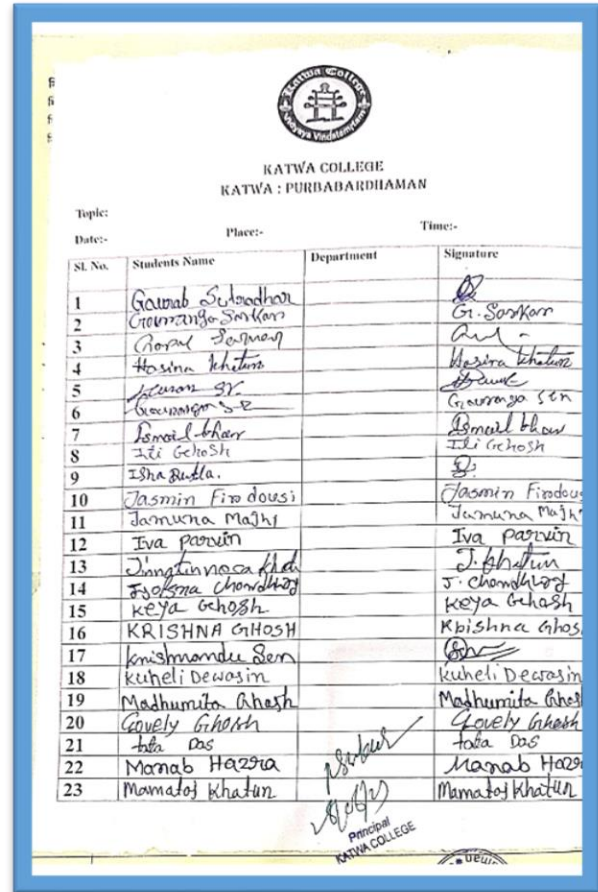 Katwa College
Vidyaya Vindateinrtam
KATWA COLLEGE
KATWA : PURBABARDHAMAN
Topic:
Date:- Place:- Time:-
Sl. No. Students Name Department Signature
1 Gaurab Sutradhar
2 Gouranga Sarkar G. Sarkar
3 Gopal
4 Hasina Khatun Hasina Khatun
5
6 Gouranga Gouranga Sen
7 Ismail Ismail
8 Iti Ghosh Iti Ghosh
9 Isha Dutta.
10 Jasmin Firdousi Jasmin Firdous
11 Jamuna Majhi Jamuna Majhi
12 Iva parvin Iva parvin
13 J. Khatun
14 Jyotsna Chowdhury J. Chowdhury
15 Keya Ghosh Keya Ghosh
16 KRISHNA GHOSH Krishna Ghos
17 Krishnandu Sen
18 Kuheli Dewasin Kuheli Dewasin
19 Madhumita Ghosh Madhumita Ghos
20 Lovely Ghosh Lovely Ghosh
21 Das Das
22 Manab Hazra Manab Hazr
23 Mamataj Khatun Mamataj Khatun
Principal
KATWA COLLEGE